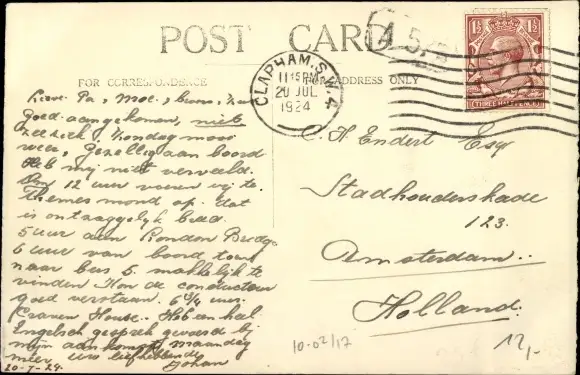 POST CARD
FOR CORRESPONDENCE
FOR ADDRESS ONLY
1½ 1½
THREE HALFPENCE
CLAPHAM. S.W.4
11 15 PM
20 JUL
1924
Lieve Pa, Moe,
Goed aangekomen, niet
zeeziek, Zondag mooi
weer, Gezellig aan boord
Heb mij niet verveeld.
12 uur voeren wij te
Themesmond op. dat
is ontzaggelijk breed.
5 uur aan London Bridge
6 uur van boord toen
naar bus 5. makkelijk te
vinden Kon de conducteur
goed verstaan. 6¾ uur.
Craven House. Heb een heel
Engelsch gesprek gevoerd bij
mijn aankomst Maandag
meer uw liefhebbende
Johan
20-7-24.
C.H. Endert Esq
Stadhouderskade
123.
Amsterdam..
Holland.
10-02/17
12,-